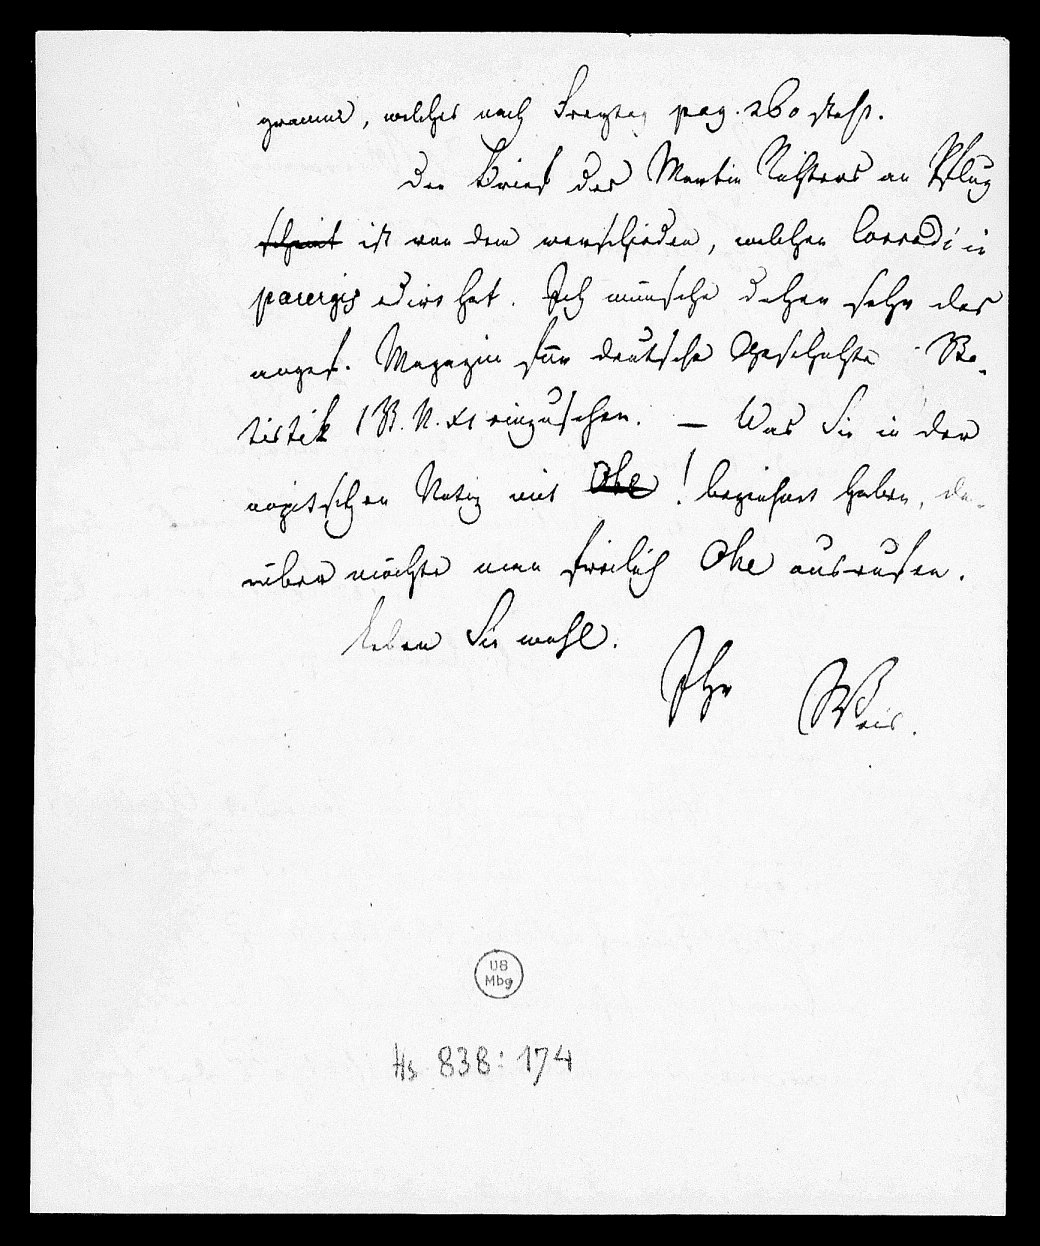 gramms, welches nach Freytag pag. 260 steht.
Der Brief des Martin Richters an Pflug
scheint ist von dem verschieden, welchen Corrodi in
parergis edirt hat. Ich wünsche daher sehr das
angef. Magazin für deutsche Geschichte Sta-
tistik 1 B. N. XI einzusehen. — Was Sie in der
Notiz mit Ohe! bezeichnet haben, da-
rüber möchte man freilich Ohe ausrufen.
Leben Sie wohl.
Ihr Weis.
UB
Mbg
Hs 838: 174